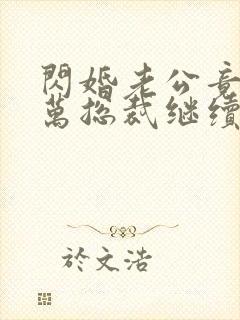 閃婚老公竟
萬總裁继續
於文浩